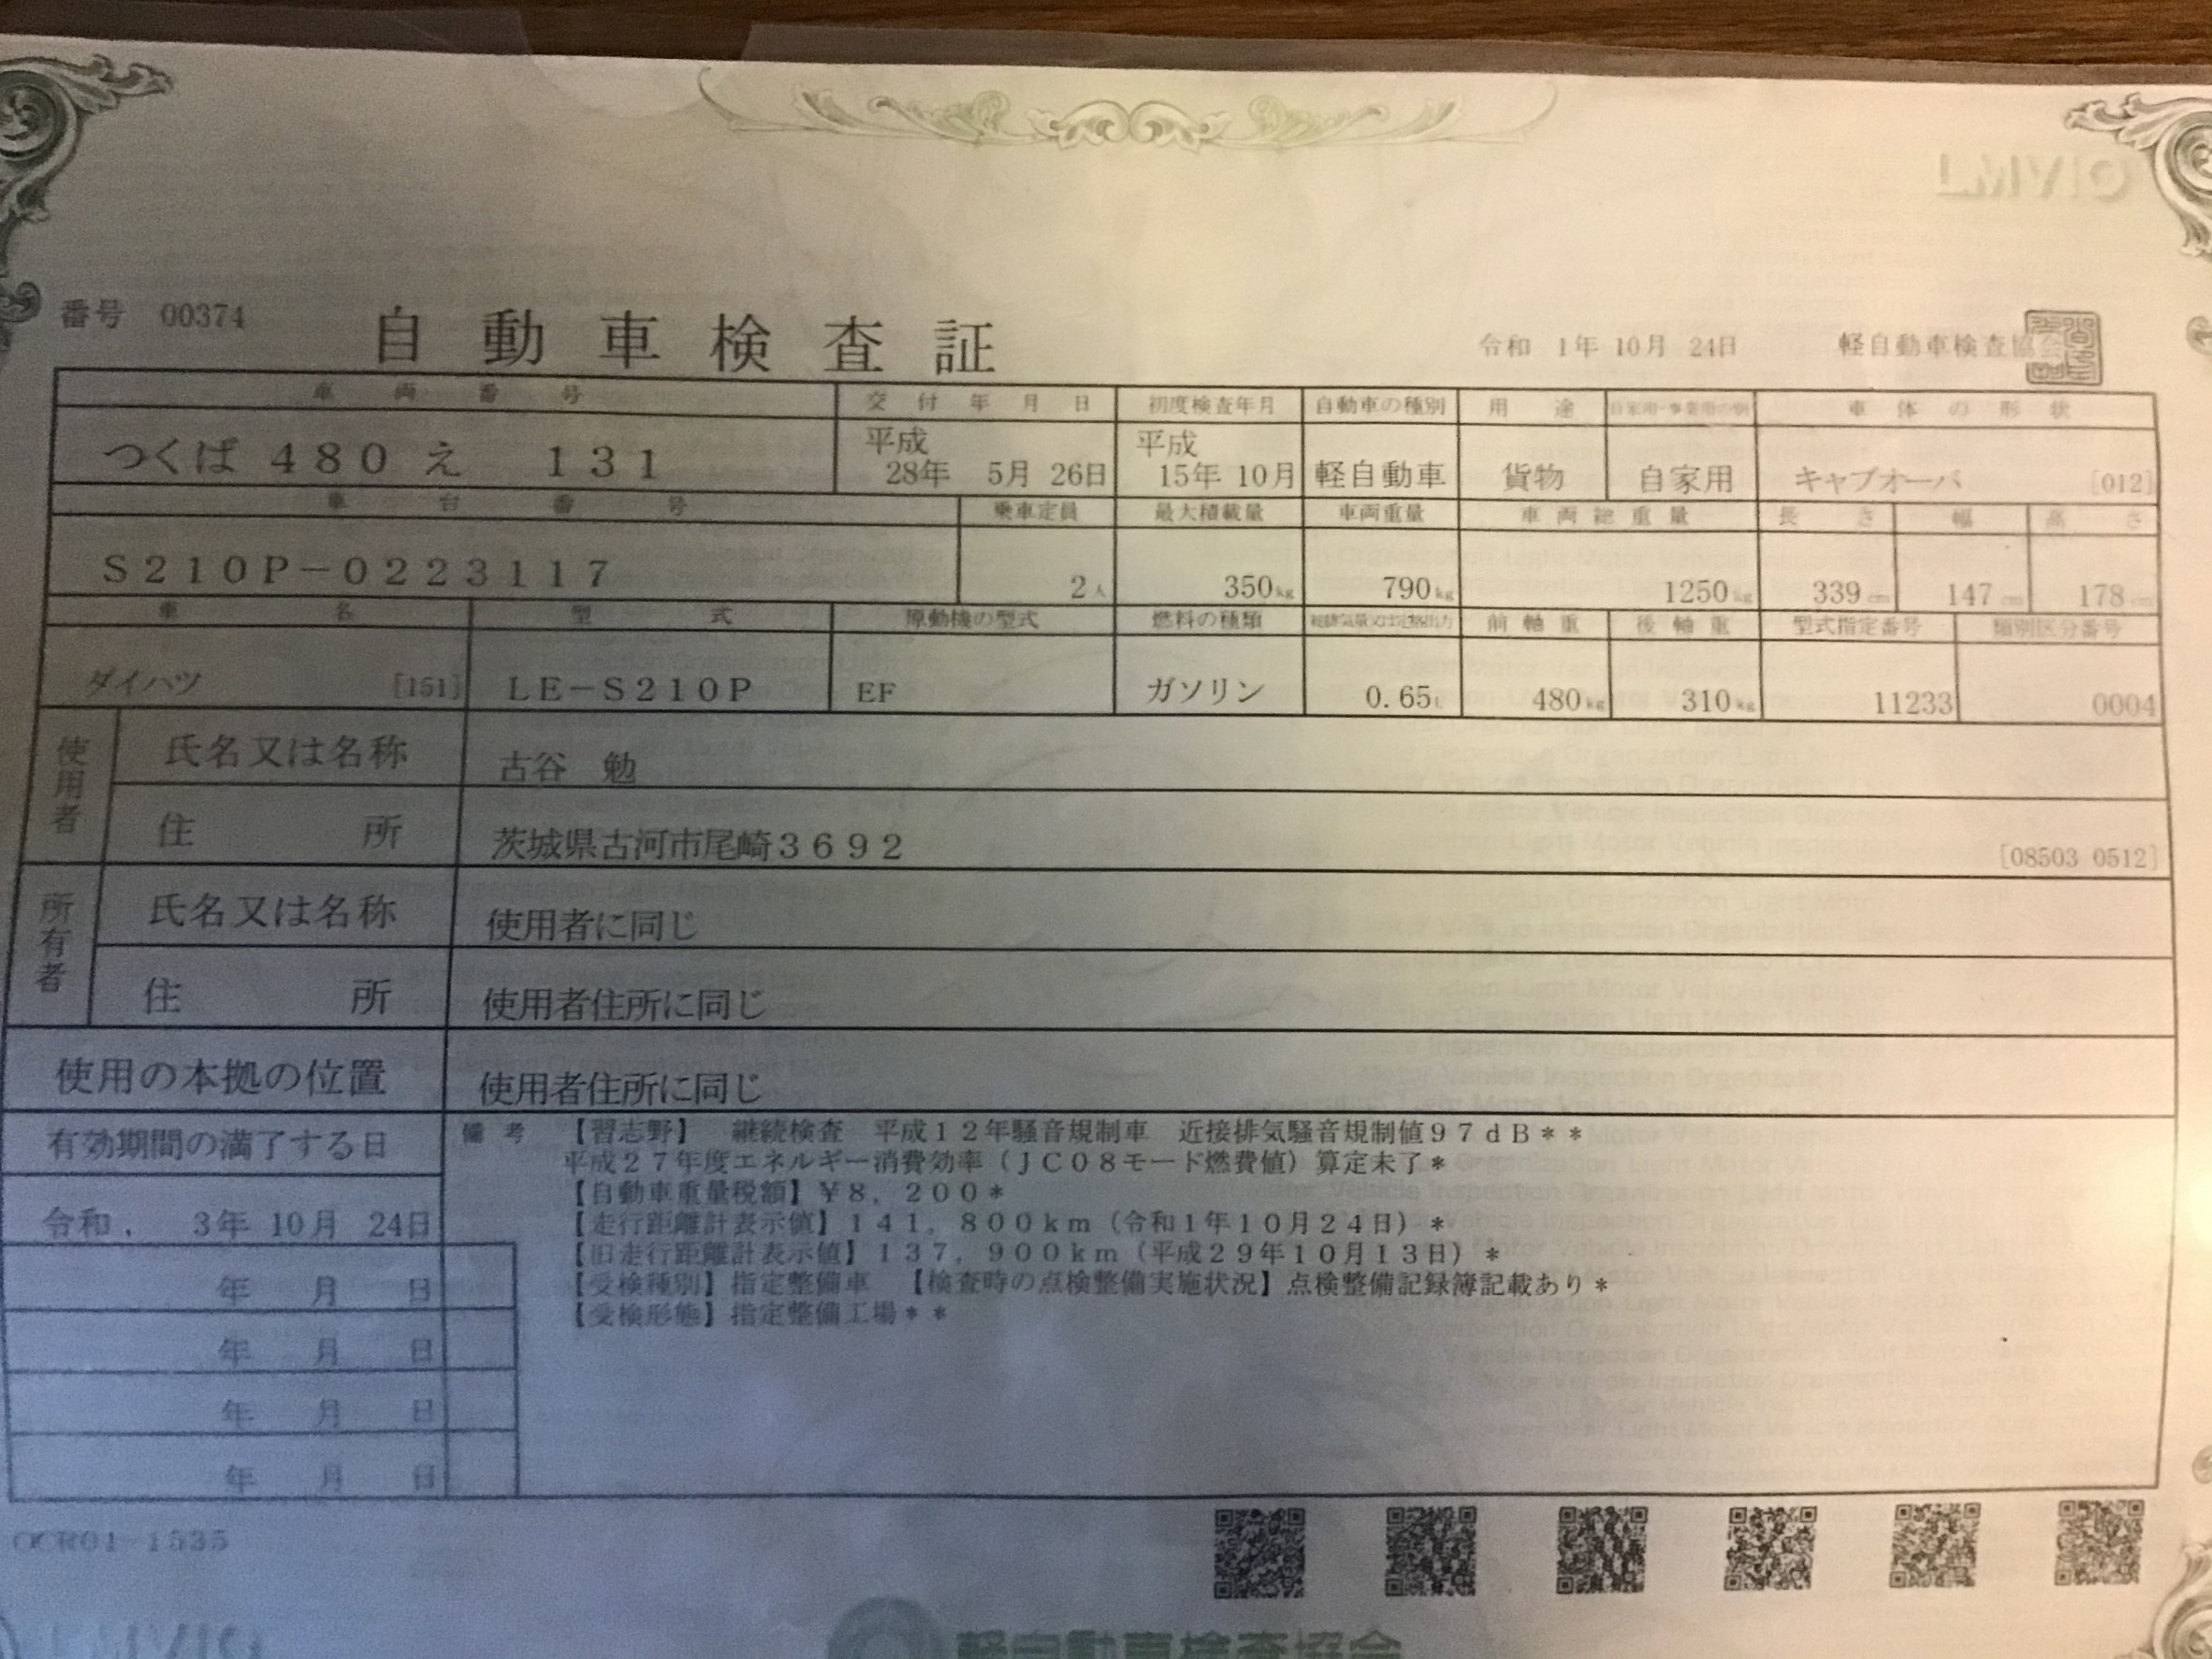 LMVIO
番号 00374
自動車検査証
令和 1年 10月 24日 軽自動車検査協会
車両番号 交付年月日 初度検査年月 自動車の種別 用途 自家用・事業用の別 車体の形状
つくば 480 え 131 平成 28年 5月 26日 平成 15年 10月 軽自動車 貨物 自家用 キャブオーバ [012]
車台番号 乗車定員 最大積載量 車両重量 車両総重量 長さ 幅 高さ
S210P-0223117 2人 350kg 790kg 1250kg 339cm 147cm 178cm
車名 型式 原動機の型式 燃料の種類 総排気量又は定格出力 前軸重 後軸重 型式指定番号 類別区分番号
ダイハツ [151] LE-S210P EF ガソリン 0.65L 480kg 310kg 11233 0004
使用者 氏名又は名称 古谷 勉
住所 茨城県古河市尾崎3692 [08503 0512]
所有者 氏名又は名称 使用者に同じ
住所 使用者住所に同じ
使用の本拠の位置 使用者住所に同じ
有効期間の満了する日
令和 3年 10月 24日
年 月 日
年 月 日
年 月 日
年 月 日
備考 【習志野】 継続検査 平成12年騒音規制車 近接排気騒音規制値97dB**
平成27年度エネルギー消費効率(JC08モード燃費値)算定未了*
【自動車重量税額】¥8,200*
【走行距離計表示値】141,800km(令和1年10月24日)*
【旧走行距離計表示値】137,900km(平成29年10月13日)*
【受検種別】指定整備車 【検査時の点検整備実施状況】点検整備記録簿記載あり*
【受検形態】指定整備工場**
OCR01-1535
軽自動車検査協会